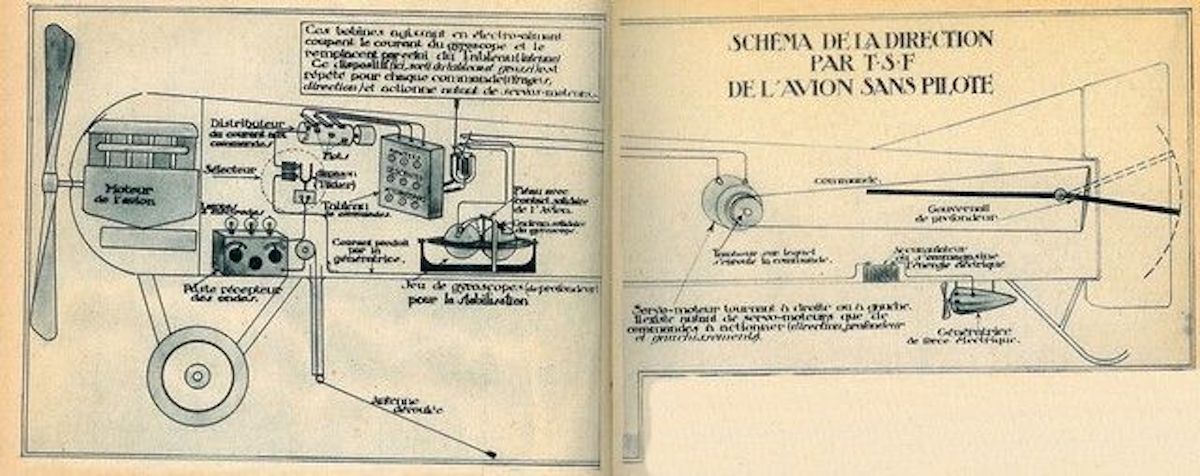 Ces bobines agissant en électro-aimant
coupent le courant du gyroscope et le
remplacent par celui du Tableau
Ce dispositif ici, sorti du tableau est
répété pour chaque commande
direction) et actionne autant de servo-moteurs.
SCHÉMA DE LA DIRECTION
PAR T.S.F
DE L'AVION SANS PILOTE
Distributeur
du courant aux
commandes.
Plots
Sélecteur
Moteur
de l'avion.
Lampes
à électrodes
Tableau
de commandes.
Courant produit
par la
génératrice.
Poste récepteur
des ondes.
Fléau avec
contact solidaire
de l'Avion.
solidaire
du gyroscope
Jeu de gyroscopes (de profondeur)
pour la stabilisation
Antenne
déroulée
commande.
Gouvernail
de profondeur
Tambour sur lequel
s'enroule la commande.
Accumulateur
où s'emmagasine
l'énergie électrique
Servo-moteur tournant à droite ou à gauche.
Il existe autant de servo-moteurs que de
commandes à actionner (direction, profondeur
et gauchissements).
Génératrice
de force électrique.